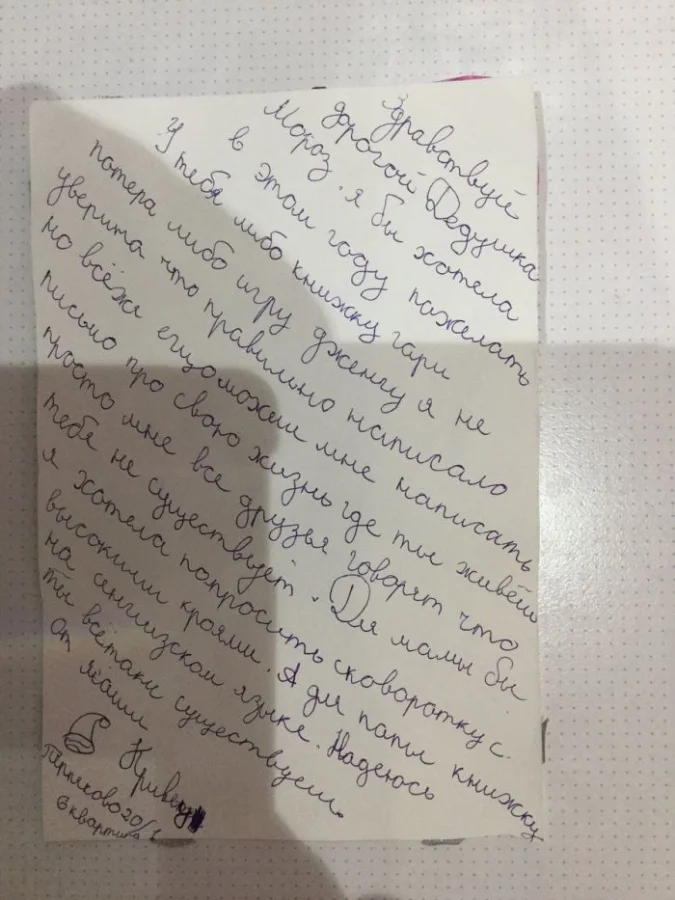 Здравствуй
дорогой Дедушка
Мороз. я бы хотела
в этом году пажелать
У тебя либо книжку гари
потера либо игру дженгу я не
уверина что правильно написало
но всёже ещо можеш мне написать
письмо про свою жизнь где ты живёш
просто мне все друзья говорят что
тебя не существует. Для мамы бы
я хотела попросить сковоротку с
высокими кроями. А для папы книжку
на англизском языке. Надеюсь
ты всётаки существуеш.
от